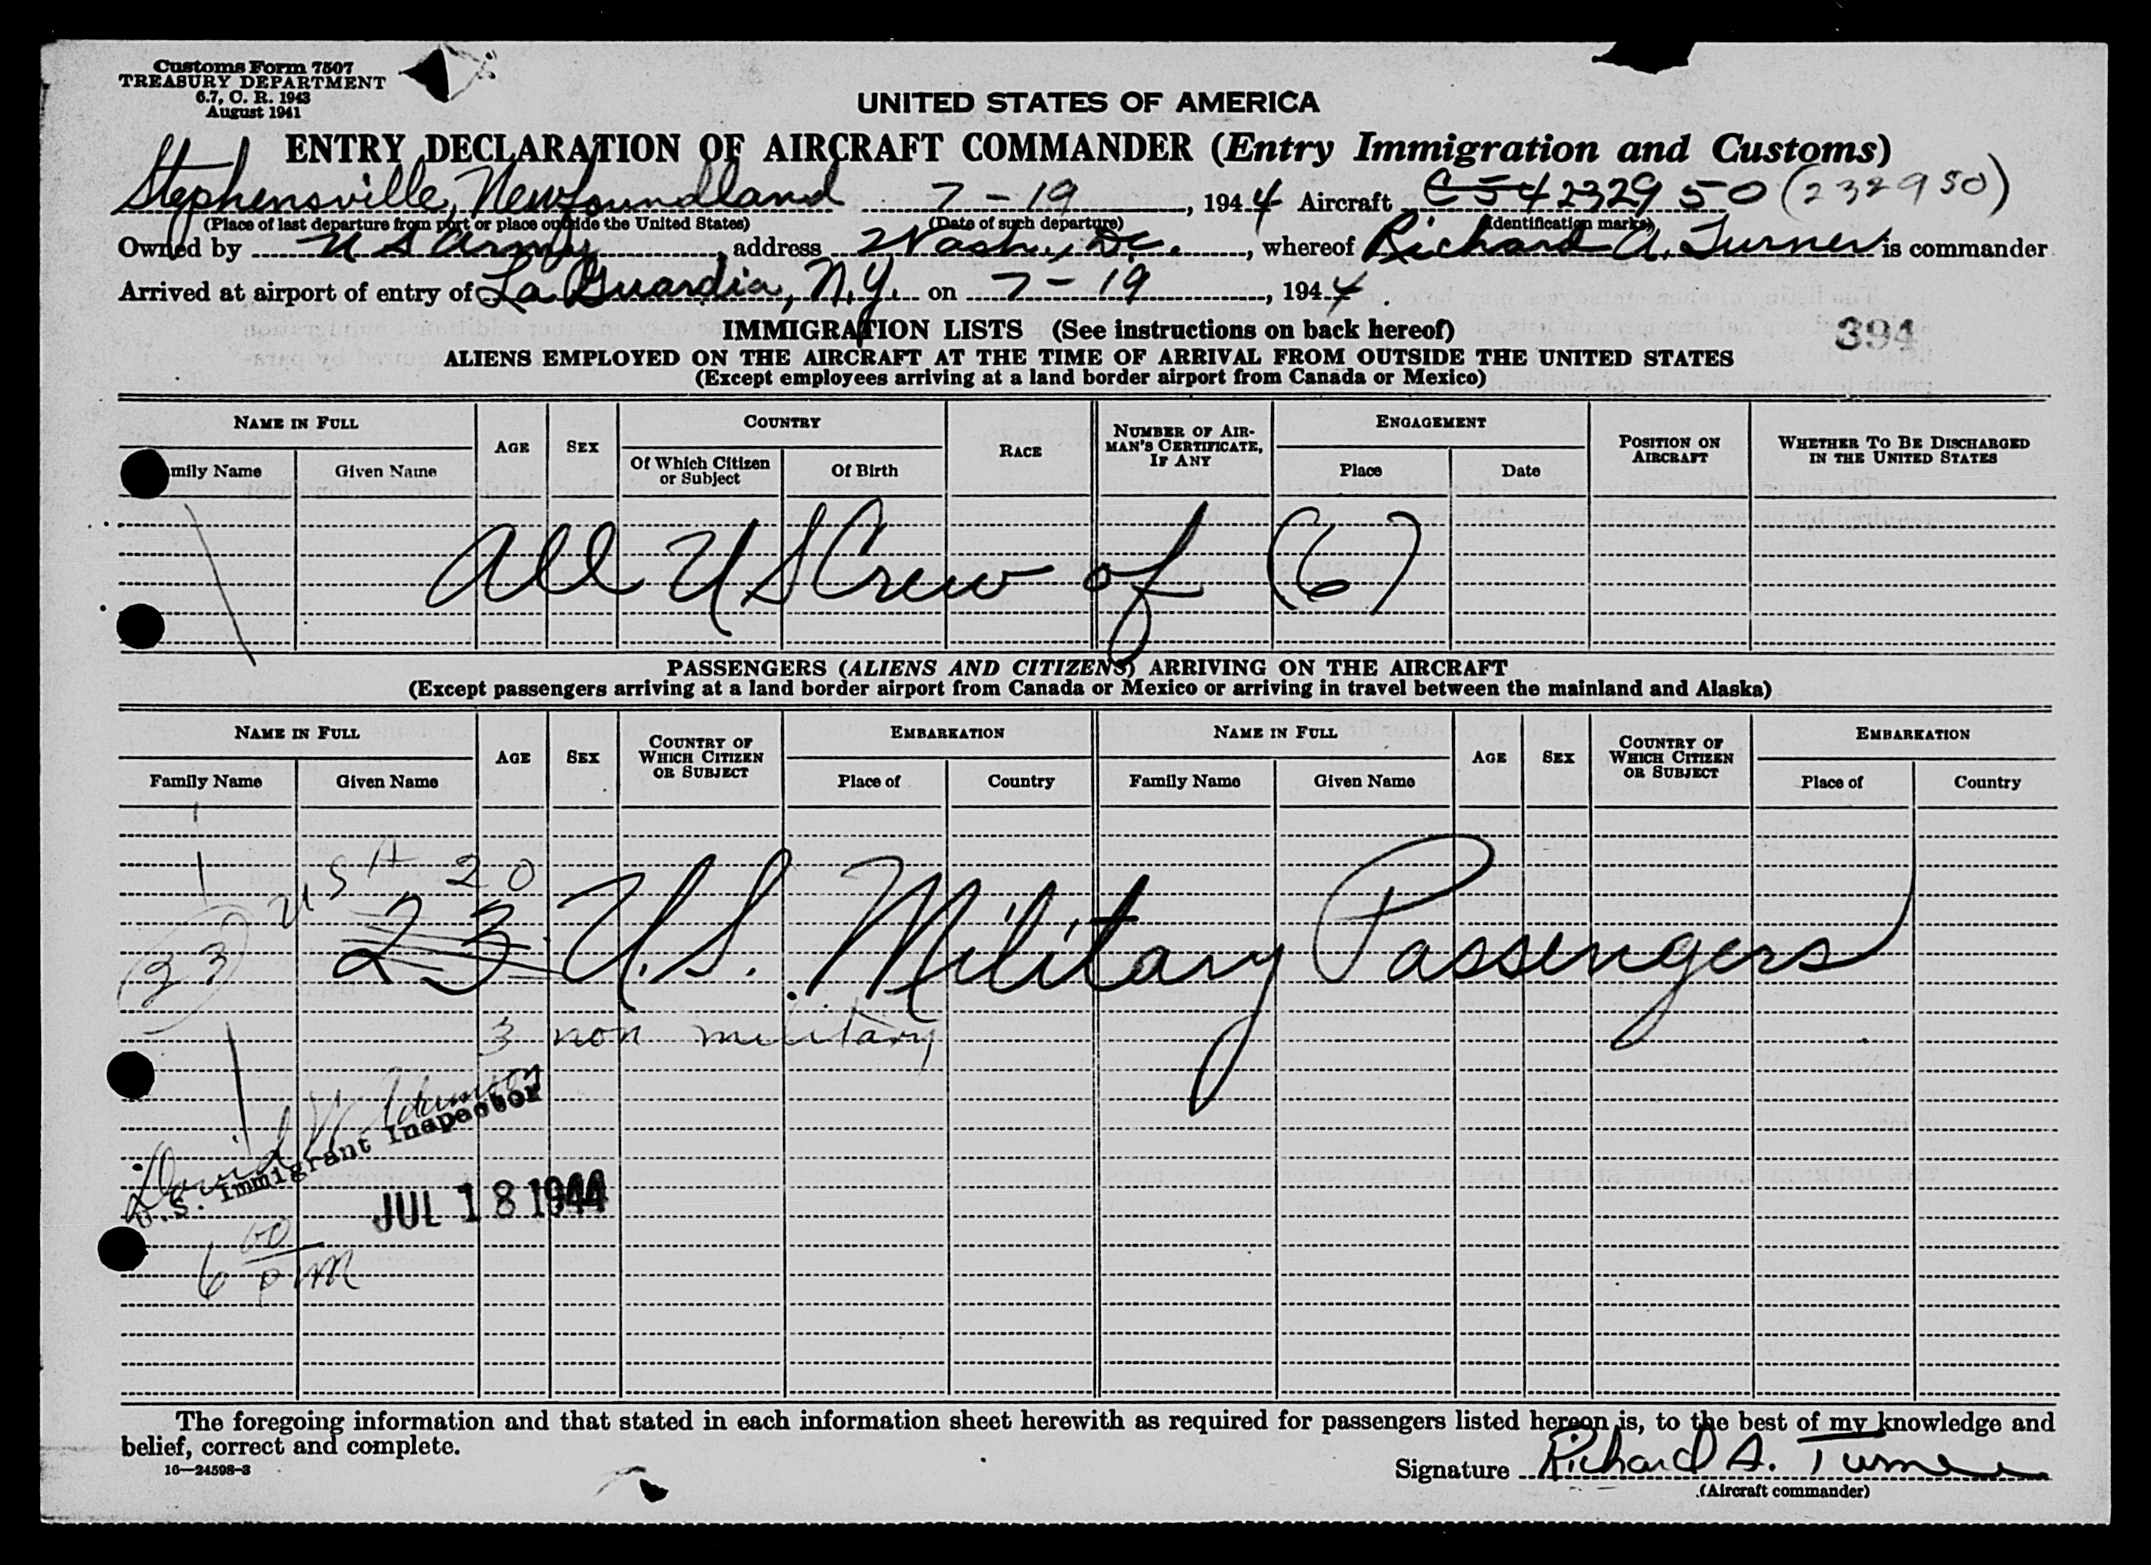 Customs Form 7507
TREASURY DEPARTMENT
6.7, C. R. 1943
August 1941
UNITED STATES OF AMERICA
ENTRY DECLARATION OF AIRCRAFT COMMANDER (Entry Immigration and Customs)
Stephensville, Newfoundland 7-19, 1944 Aircraft C 54 232950 (232950)
(Place of last departure from port or place outside the United States) (Date of such departure) (Identification marks)
Owned by US Army, address Wash., D.C., whereof Richard A. Turner is commander
Arrived at airport of entry of La Guardia, N.Y. on 7-19, 1944.
IMMIGRATION LISTS (See instructions on back hereof)
394
ALIENS EMPLOYED ON THE AIRCRAFT AT THE TIME OF ARRIVAL FROM OUTSIDE THE UNITED STATES
(Except employees arriving at a land border airport from Canada or Mexico)
NAME IN FULL AGE SEX COUNTRY RACE NUMBER OF AIRMAN'S CERTIFICATE, IF ANY ENGAGEMENT POSITION ON AIRCRAFT WHETHER TO BE DISCHARGED IN THE UNITED STATES
mily Name Given Name Of Which Citizen or Subject Of Birth Place Date
All US Crew of (6)
PASSENGERS (ALIENS AND CITIZENS) ARRIVING ON THE AIRCRAFT
(Except passengers arriving at a land border airport from Canada or Mexico or arriving in travel between the mainland and Alaska)
NAME IN FULL AGE SEX COUNTRY OF WHICH CITIZEN OR SUBJECT EMBARKATION NAME IN FULL AGE SEX COUNTRY OF WHICH CITIZEN OR SUBJECT EMBARKATION
Family Name Given Name Place of Country Family Name Given Name Place of Country
USA 20
23 23 U.S. Military Passengers
3 non military
David
U.S. Immigrant Inspector
JUL 18 1944
6 00 PM
The foregoing information and that stated in each information sheet herewith as required for passengers listed hereon is, to the best of my knowledge and
belief, correct and complete.
16—24598-3
Signature Richard A. Turner
(Aircraft commander)